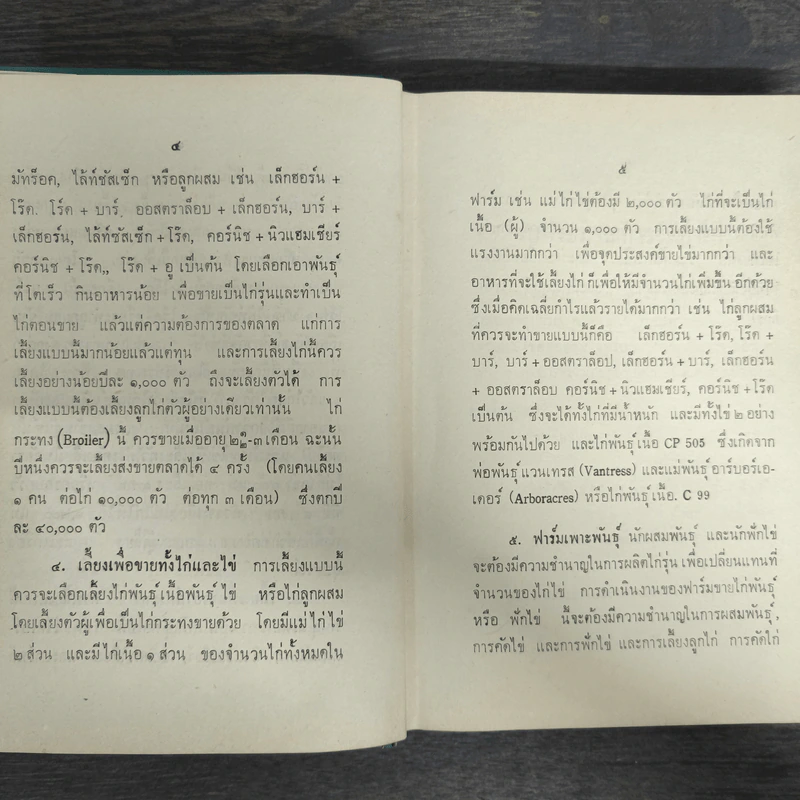 ๔
มัทร็อค, ไล้ท์ซัสเซ็ก หรือลูกผสม เช่น เล็กฮอร์น +
โร๊ด. โร๊ด + บาร์, ออสตราล็อบ + เล็กฮอร์น, บาร์ +
เล็กฮอร์น, ไล้ท์ซัสเซ็ก + โร๊ด, คอร์นิช + นิวแฮมเชียร์
คอร์นิช + โร๊ด,, โร๊ด + อู เป็นต้น โดยเลือกเอาพันธุ์
ที่โตเร็ว กินอาหารน้อย เพื่อขายเป็นไก่รุ่นและทำเป็น
ไก่ตอนขาย แล้วแต่ความต้องการของตลาด แก่การ
เลี้ยงแบบนี้มากน้อยแล้วแต่ทุน และการเลี้ยงไก่นี้ควร
เลี้ยงอย่างน้อยปีละ ๑,๐๐๐ ตัว ถึงจะเลี้ยงตัวได้ การ
เลี้ยงแบบนี้ต้องเลี้ยงลูกไก่ตัวผู้อย่างเดียวเท่านั้น ไก่
กระทง (Broiler) นี้ ควรขายเมื่ออายุ ๒๒-๓ เดือน ฉะนั้น
ปีหนึ่งควรจะเลี้ยงส่งขายตลาดได้ ๔ ครั้ง (โดยคนเลี้ยง
๑ คน ต่อไก่ ๑๐,๐๐๐ ตัว ต่อทุก ๓ เดือน) ซึ่งตกปี
ละ ๔๐,๐๐๐ ตัว
๔. เลี้ยงเพื่อขายทั้งไก่และไข่ การเลี้ยงแบบนี้
ควรจะเลือกเลี้ยงไก่พันธุ์เนื้อพันธุ์ไข่ หรือไก่ลูกผสม
โดยเลี้ยงตัวผู้เพื่อเป็นไก่กระทงขายด้วย โดยมีแม่ไก่ไข่
๒ ส่วน และมีไก่เนื้อ ๑ ส่วน ของจำนวนไก่ทั้งหมดใน
๕
ฟาร์ม เช่น แม่ไก่ไข่ต้องมี ๒,๐๐๐ ตัว ไก่ที่จะเป็นไก่
เนื้อ (ผู้) จำนวน ๑,๐๐๐ ตัว การเลี้ยงแบบนี้ต้องใช้
แรงงานมากกว่า เพื่อจุดประสงค์ขายไข่มากกว่า และ
อาหารที่จะใช้เลี้ยงไก่ ก็เพื่อให้มีจำนวนไก่เพิ่มขึ้น อีกด้วย
ซึ่งเมื่อคิดเฉลี่ยกำไรแล้วรายได้มากกว่า เช่น ไก่ลูกผสม
ที่ควรจะทำขายแบบนี้ก็คือ เล็กฮอร์น + โร๊ด, โร๊ด +
บาร์, บาร์ + ออสตราล็อป, เล็กฮอร์น + บาร์, เล็กฮอร์น
+ ออสตราล็อบ คอร์นิช + นิวแฮมเชียร์, คอร์นิช + โร๊ด
เป็นต้น ซึ่งจะได้ทั้งไก่ที่มีน้ำหนัก และมีทั้งไข่ ๒ อย่าง
พร้อมกันไปด้วย และไก่พันธุ์เนื้อ CP 505 ซึ่งเกิดจาก
พ่อพันธุ์แวนเทรส (Vantress) และแม่พันธุ์อาร์บอร์เอ-
เคอร์ (Arboracres) หรือไก่พันธุ์เนื้อ. C 99
๕. ฟาร์มเพาะพันธุ์ นักผสมพันธุ์ และนักฟักไข่
จะต้องมีความชำนาญในการผลิตไก่รุ่น เพื่อเปลี่ยนแทนที่
จำนวนของไก่ไข่ การดำเนินงานของฟาร์มขายไก่พันธุ์
หรือ ฟักไข่ นี้จะต้องมีความชำนาญในการผสมพันธุ์,
การคัดไข่ และการฟักไข่ และการเลี้ยงลูกไก่ การคัดไก่